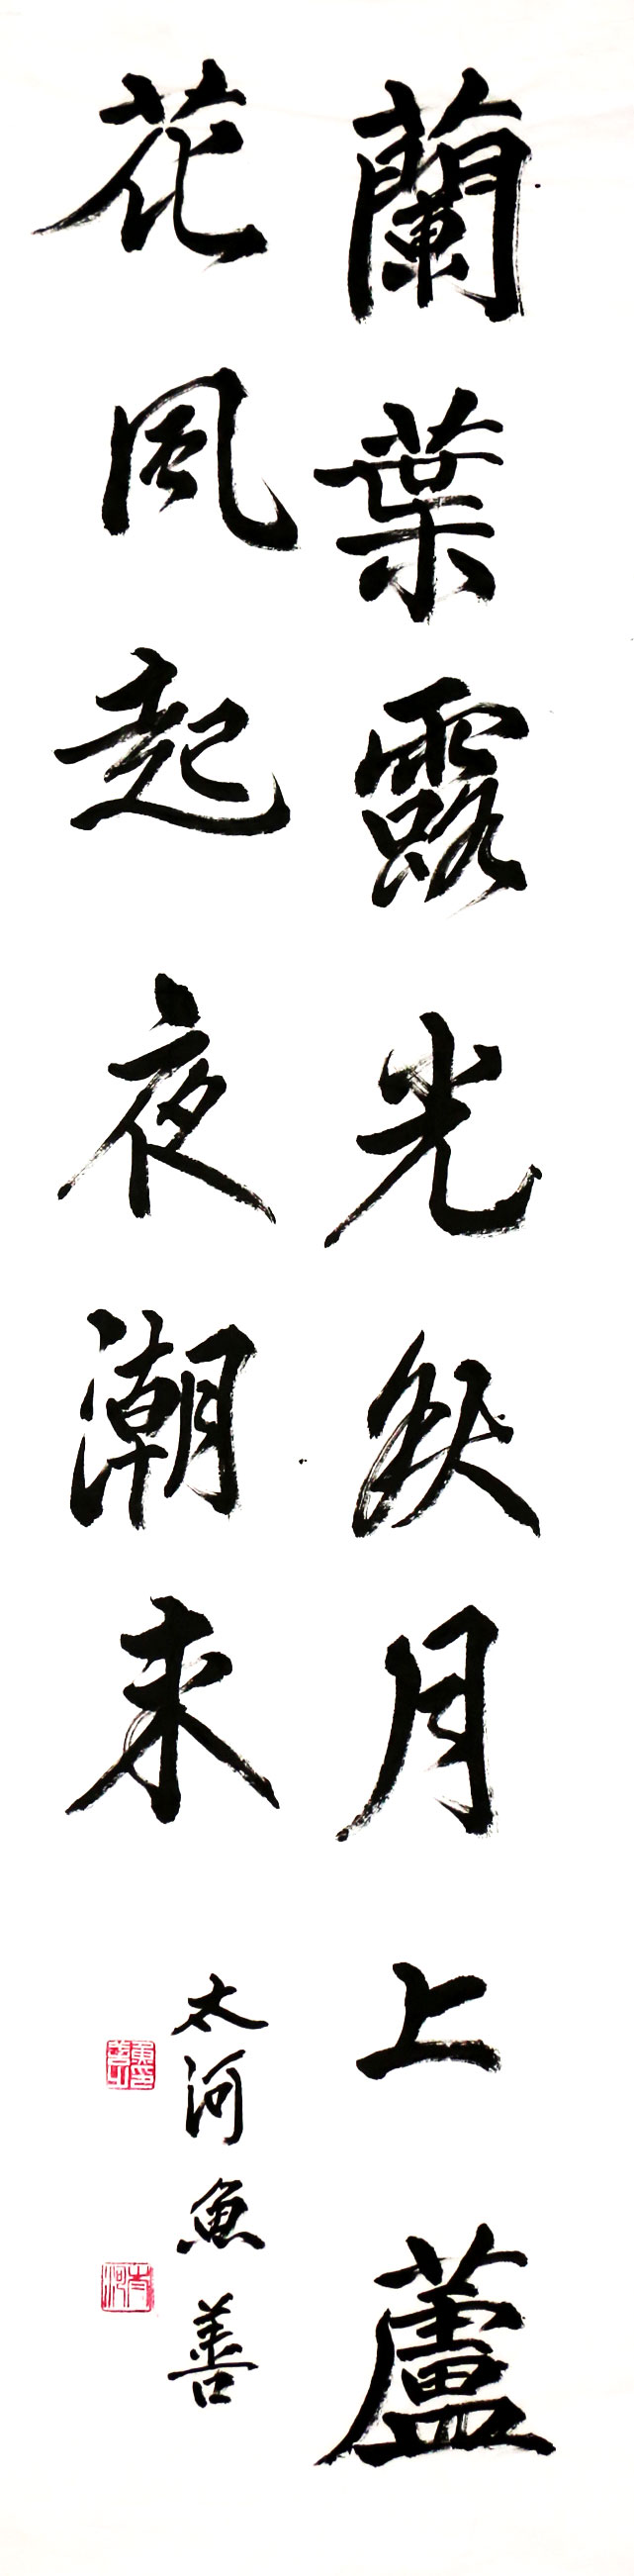 蘭葉露光秋月上蘆
花風起夜潮来
太河魚善